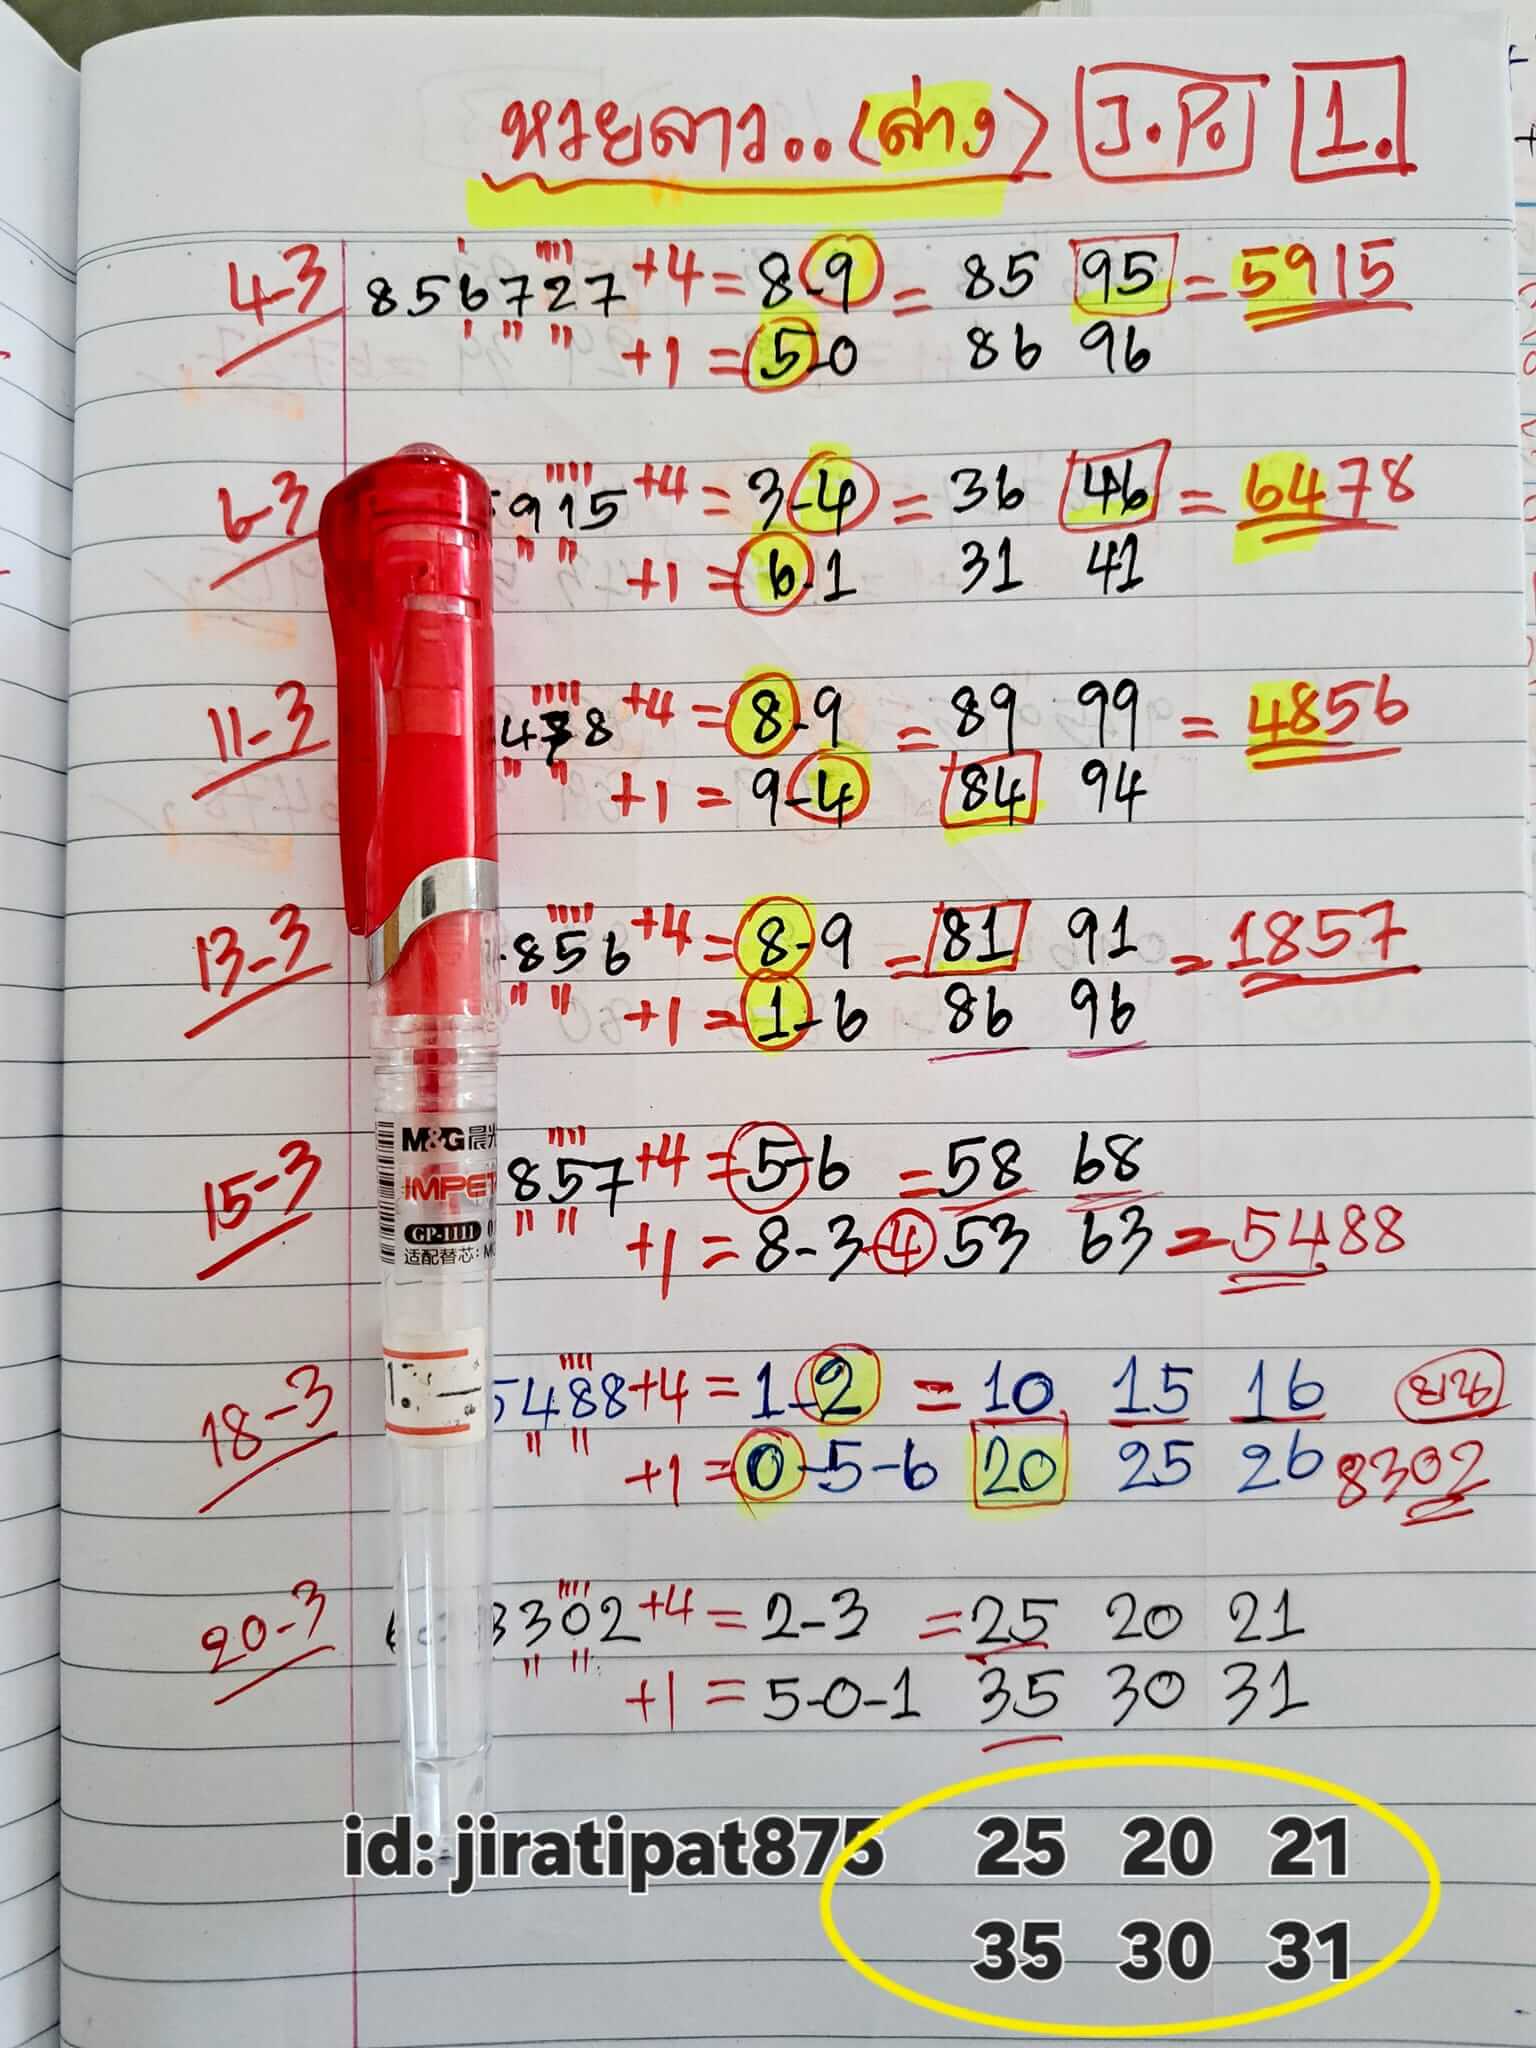 หวยลาว..(ล่าง) J.P. 1.
4-3 856727 +4 = 8-9 = 85 95 = 5915
+1 = 5-0 86 96
6-3 5915 +4 = 3-4 = 36 46 = 6478
+1 = 6-1 31 41
11-3 478 +4 = 8-9 = 89 99 = 4856
+1 = 9-4 84 94
13-3 856 +4 = 8-9 = 81 91 = 1857
+1 = 1-6 86 96
15-3 857 +4 = 5-6 = 58 68
+1 = 8-3-4 53 63 = 5488
M&G晨光
IMPET
GP-1111
适配替芯:
18-3 5488 +4 = 1-2 = 10 15 16
+1 = 0-5-6 20 25 26 8302
20-3 3302 +4 = 2-3 = 25 20 21
+1 = 5-0-1 35 30 31
id: jiratipat875 25 20 21
35 30 31